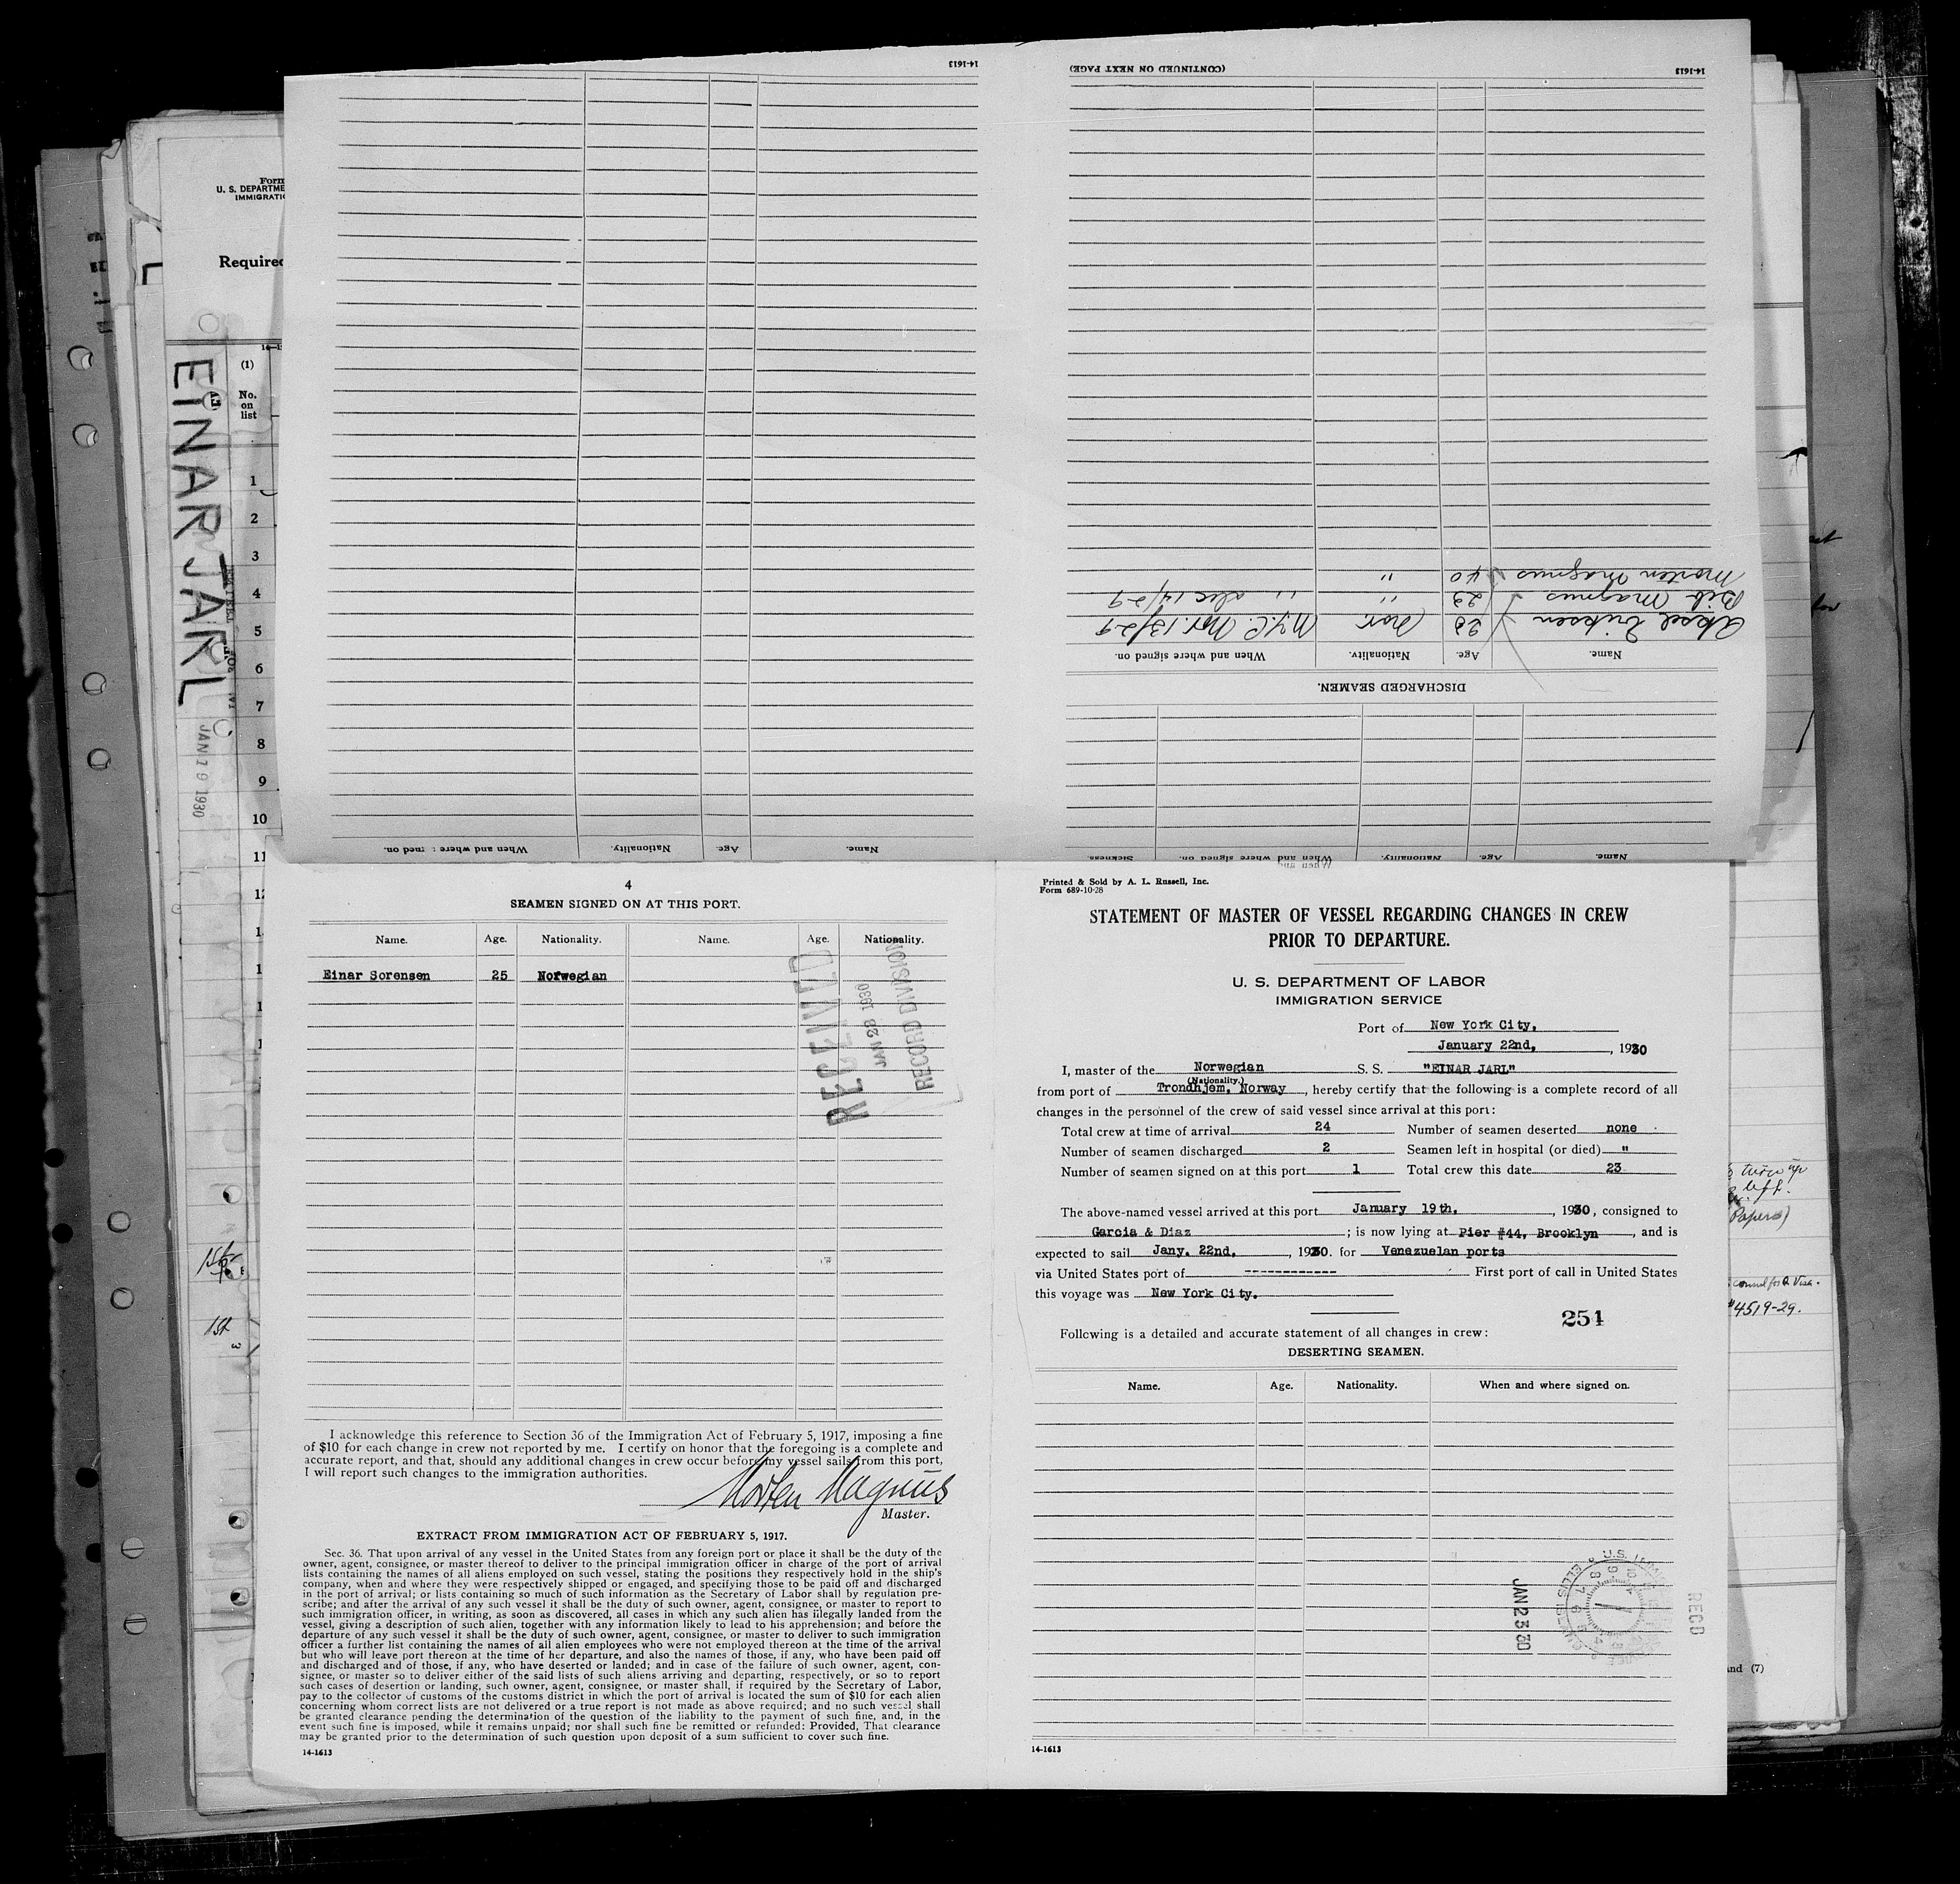 14-1613
(CONTINUED ON NEXT PAGE)
14-1613
Morten Magnus 40 "
Magnus 22 " " Dec 14/29
Aksel Eriksen Nor. N.Y.C. Nov. 13/29
Name. Age. Nationality. When and where signed on.
DISCHARGED SEAMEN.
Name. Age. Nationality. When and where signed on. Sickness.
Name. Age. Nationality. When and where signed on.
Form
U. S. DEPARTME
IMMIGRATIO
Required
EINAR JARL
JAN 19 1930
(1)
No.
on
list
1
2
3
4
5
6
7
8
9
10
11
4
SEAMEN SIGNED ON AT THIS PORT.
Name. Age. Nationality. Name. Age. Nationality.
Einar Sorensen 25 Norwegian
RECEIVED
JAN 28 1930
RECORD DIVISION
I acknowledge this reference to Section 36 of the Immigration Act of February 5, 1917, imposing a fine
of $10 for each change in crew not reported by me. I certify on honor that the foregoing is a complete and
accurate report, and that, should any additional changes in crew occur before my vessel sails from this port,
I will report such changes to the immigration authorities.
Morten Magnus
Master.
EXTRACT FROM IMMIGRATION ACT OF FEBRUARY 5, 1917.
Sec. 36. That upon arrival of any vessel in the United States from any foreign port or place it shall be the duty of the
owner, agent, consignee, or master thereof to deliver to the principal immigration officer in charge of the port of arrival
lists containing the names of all aliens employed on such vessel, stating the positions they respectively hold in the ship's
company, when and where they were respectively shipped or engaged, and specifying those to be paid off and discharged
in the port of arrival; or lists containing so much of such information as the Secretary of Labor shall by regulation pre-
scribe; and after the arrival of any such vessel it shall be the duty of such owner, agent, consignee, or master to report to
such immigration officer, in writing, as soon as discovered, all cases in which any such alien has illegally landed from the
vessel, giving a description of such alien, together with any information likely to lead to his apprehension; and before the
departure of any such vessel it shall be the duty of such owner, agent, consignee, or master to deliver to such immigration
officer a further list containing the names of all alien employees who were not employed thereon at the time of the arrival
but who will leave port thereon at the time of her departure, and also the names of those, if any, who have been paid off
and discharged and of those, if any, who have deserted or landed; and in case of the failure of such owner, agent, con-
signee, or master so to deliver either of the said lists of such aliens arriving and departing, respectively, or so to report
such cases of desertion or landing, such owner, agent, consignee, or master shall, if required by the Secretary of Labor,
pay to the collector of customs of the customs district in which the port of arrival is located the sum of $10 for each alien
concerning whom correct lists are not delivered or a true report is not made as above required; and no such vessel shall
be granted clearance pending the determination of the question of the liability to the payment of such fine, and, in the
event such fine is imposed, while it remains unpaid; nor shall such fine be remitted or refunded: Provided, That clearance
may be granted prior to the determination of such question upon deposit of a sum sufficient to cover such fine.
14-1613
Printed & Sold by A. L. Russell, Inc.
Form 689-10-28
STATEMENT OF MASTER OF VESSEL REGARDING CHANGES IN CREW
PRIOR TO DEPARTURE.
U. S. DEPARTMENT OF LABOR
IMMIGRATION SERVICE
Port of New York City,
January 22nd, , 1930
I, master of the Norwegian S. S. "EINAR JARL"
(Nationality.)
from port of Trondhjem, Norway , hereby certify that the following is a complete record of all
changes in the personnel of the crew of said vessel since arrival at this port:
Total crew at time of arrival 24 Number of seamen deserted none
Number of seamen discharged 2 Seamen left in hospital (or died) "
Number of seamen signed on at this port 1 Total crew this date 23
The above-named vessel arrived at this port January 19th. , 1930, consigned to
Garcia & Diaz ; is now lying at Pier #44, Brooklyn , and is
expected to sail Jany. 22nd. , 1930. for Venezuelan ports
via United States port of ------------ First port of call in United States
this voyage was New York City.
251
Following is a detailed and accurate statement of all changes in crew:
DESERTING SEAMEN.
Name. Age. Nationality. When and where signed on.
JAN 23 30
REC'D
14-1613
left.
Papers)
#4519-29.
and (7)